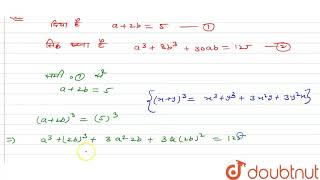 दिया है a+2b = 5 —①
सिद्ध करना है a³ + 8b³ + 30ab = 125 —②
समी० ① से
a+2b = 5
{(x+y)³ = x³+y³+3x²y+3y²x}
(a+2b)³ = (5)³
⇒ a³+(2b)³ + 3a²2b + 3a(2b)² = 125
doubtnut